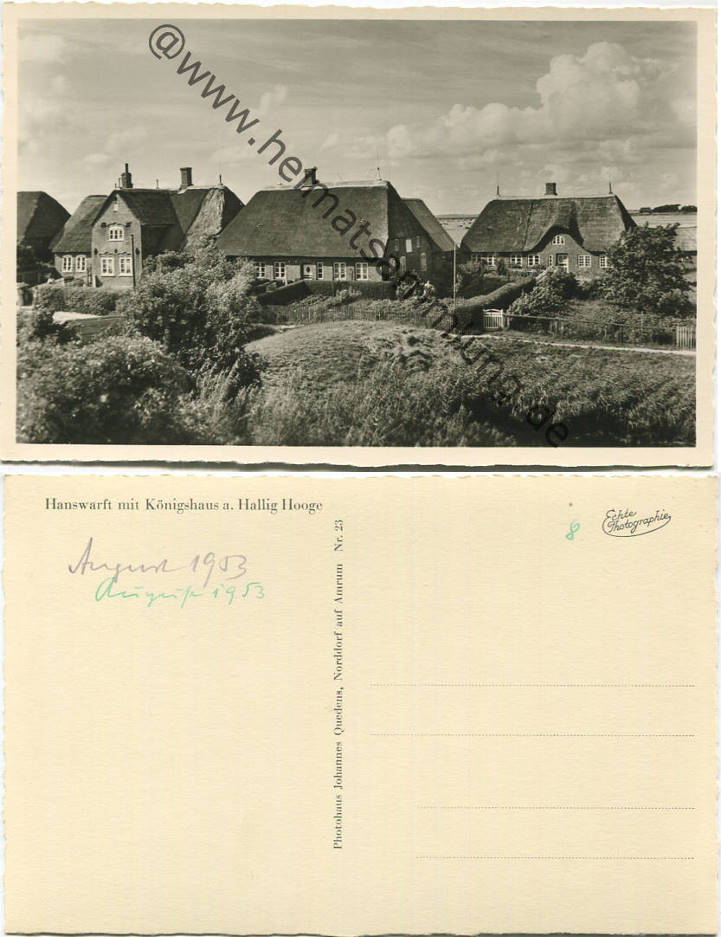 @www.heimatsammlung.de
Hanswarft mit Königshaus a. Hallig Hooge
August 1953
August 1953
Photohaus Johannes Quedens, Norddorf auf Amrum Nr. 23
8
Echte
Photographie